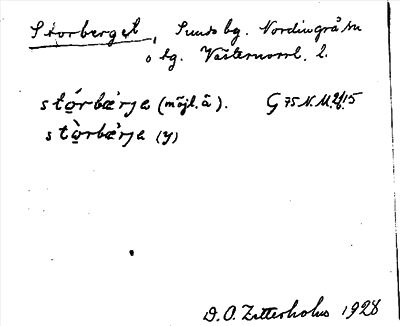 Storberget, Sunds bg. Nordingrå sn
o tg. Västernorrl. l.
stó̲rbæ̀rjɐ (möjl. â). G 75 N. M. 2/8 15
stò̲rbæ̀rjɐ (y)
D. O. Zetterholm 1928